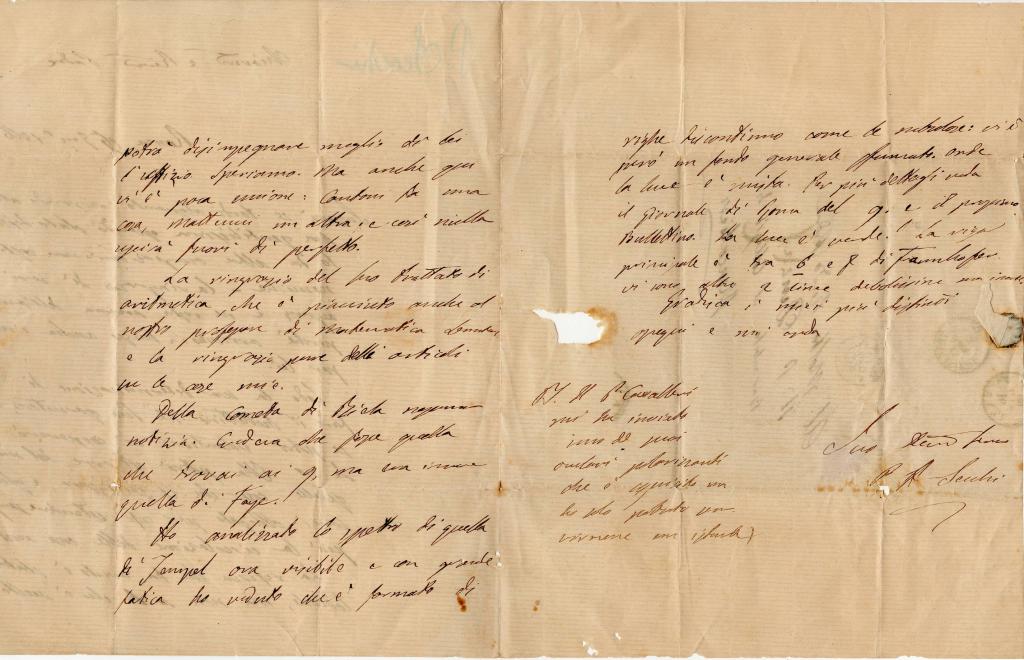 potrà disimpegnare meglio di lei
l'uffizio speriamo. Ma anche qui
vi è poca unione: Cantoni fa una
cosa, Matteucci un altra, e così nulla
uscirà fuori di perfetto.
La ringrazio del suo trattato di
aritmetica, che è piaciuto anche al
nostro professore di Matematica
e la ringrazio pure delli articoli
su le cose mie.
Della Cometa di Biela nessuna
notizia. Credeva che fosse quella
che trovai ai 9, ma era invece
quella di Faye.
Ho analizzato lo spettro di quella
di Tempel ora visibile e con grande
fatica ho veduto che è formato di
righe discontinue come le nebulose: vi è
però un fondo generale sfumato. onde
la luce è mista. Per più dettagli veda
il Giornale di Roma del 9. e il prossimo
Bullettino. La luce è verde. La riga
principale è tra b e f di Fraunhofer
vi sono altre 2 linee debolissime
i miei più distinti
ossequi e mi creda
PS. Il P. Cavalleri
mi ha inviato
uno de suoi
oculari polarizzanti
che è
ho solo potuto
Suo
P. A. Secchi
P. Secchi